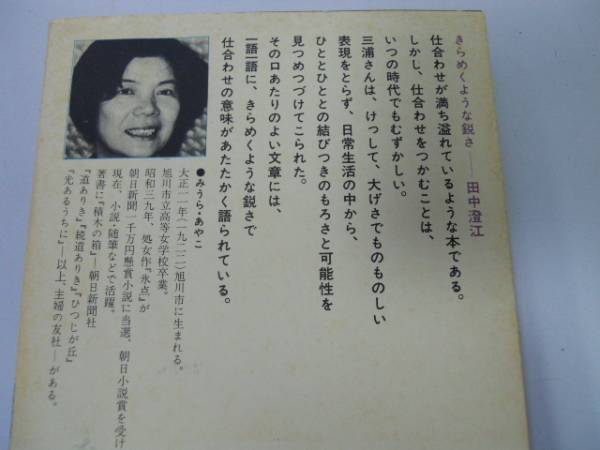 きらめくような鋭さ――田中澄江
仕合わせが満ち溢れているような本である。
しかし、仕合わせをつかむことは、
いつの時代でもむずかしい。
三浦さんは、けっして、大げさでものものしい
表現をとらず、日常生活の中から、
ひととひととの結びつきのもろさと可能性を
見つめつづけてこられた。
その口あたりのよい文章には、
一語一語に、きらめくような鋭さで
仕合わせの意味があたたかく語られている。
●みうら・あやこ
大正一一年(一九二二)旭川市に生まれる。
旭川市立高等女学校卒業。
昭和三九年、処女作『氷点』が
朝日新聞一千万円懸賞小説に当選、朝日小説賞を受け
現在、小説・随筆などで活躍。
著書に『積木の箱』―朝日新聞社
『道ありき』『続道ありき』『ひつじが丘』
『光あるうちに』―以上、主婦の友社―がある。